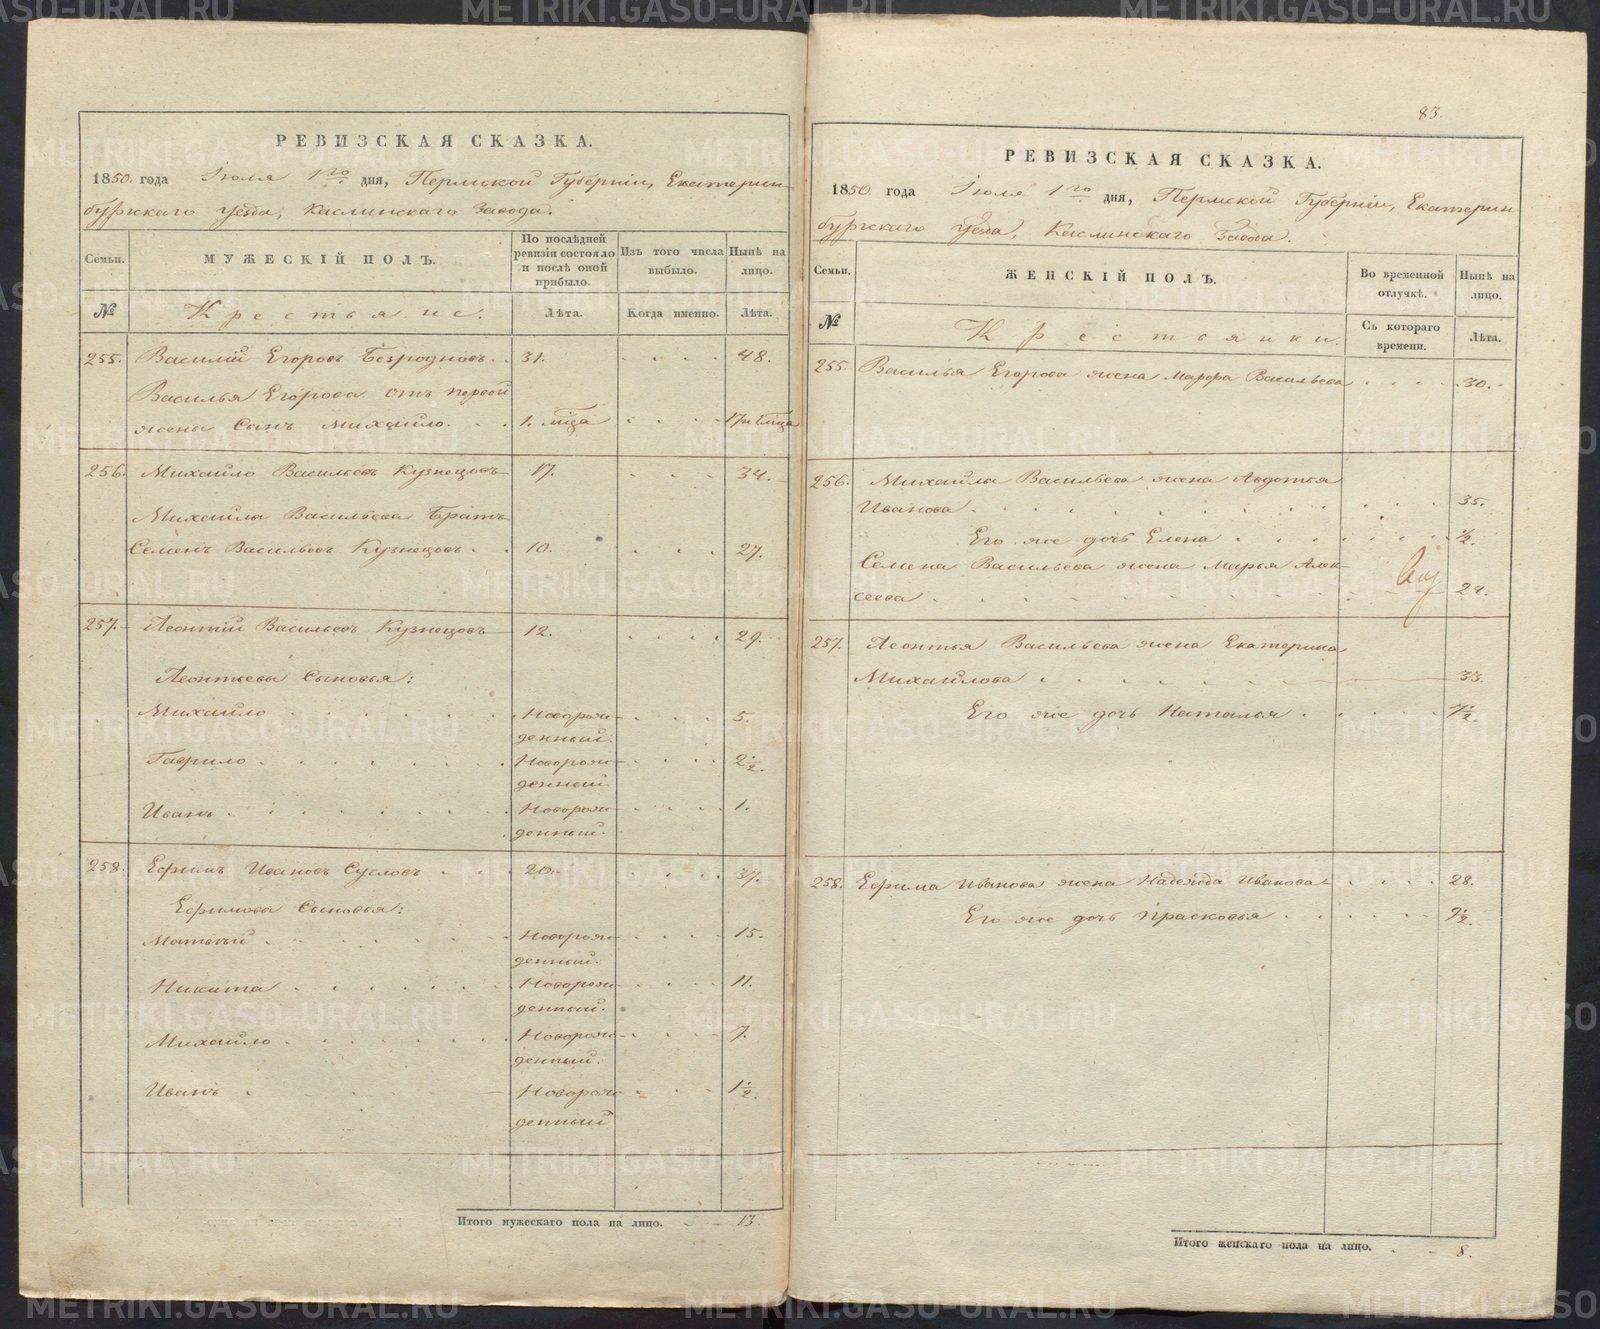 РЕВИЗСКАЯ СКАЗКА.
1850. года Іюля 1го дня, Пермской Губерніи, Екатерин-
бургскаго Уезда, Каслинскаго Завода.
Семьи.
МУЖЕСКІЙ ПОЛЪ.
По послѣдней ревизіи состояло и послѣ оной прибыло.
Изъ того числа выбыло.
Нынѣ на лицо.
№ Крестьяне. Лѣта. Когда именно. Лѣта.
255. Василий Егоровъ Безродновъ. 31. 48.
Василья Егорова отъ первой
жены Сынъ Михайло. 1. мѣца
256. Михайло Васильевъ Кузнецовъ 17. 34.
Михайлы Васильева Братъ
Семенъ Васильевъ Кузнецовъ. 10. 27.
257. Леонтій Васильевъ Кузнецовъ 12. 29.
Леонтьевы Сыновья:
Михайло Новорож- 5.
денный.
Гаврило Новорож- 2½.
денный.
Иванъ Новорож- 1.
денный.
258. Ефимъ Ивановъ Сусловъ 20. 37.
Ефимовы Сыновья:
Матвѣй Новорож- 15.
денный.
Никита Новорож- 11.
денный.
Михайло Новорож- 7.
денный.
Иванъ Новорож- 1½.
денный
Итого мужескаго пола на лицо. 13.
83.
РЕВИЗСКАЯ СКАЗКА.
1850 года Іюля 1го дня, Пермской Губерніи, Екатерин-
бургскаго Уезда, Каслинскаго Завода.
Семьи.
ЖЕНСКІЙ ПОЛЪ.
Во временной отлучкѣ.
Нынѣ на лицо.
№ Крестьянки. Съ котораго времени. Лѣта.
255. Василья Егорова жена Марфа Васильева 30.
256. Михайлы Васильева жена Авдотья
Иванова 35.
Его же дочь Елена ½.
Семена Васильева жена Марья Алек-
сеева 24.
257. Леонтья Васильева жена Екатерина
Михайлова 33.
Его же дочь Наталья 7½.
258. Ефима Иванова жена Надежда Иванова 28.
Его же дочь Прасковья 9½.
Итого женскаго пола на лицо. 8.
METRIKI.GASO-URAL.RU